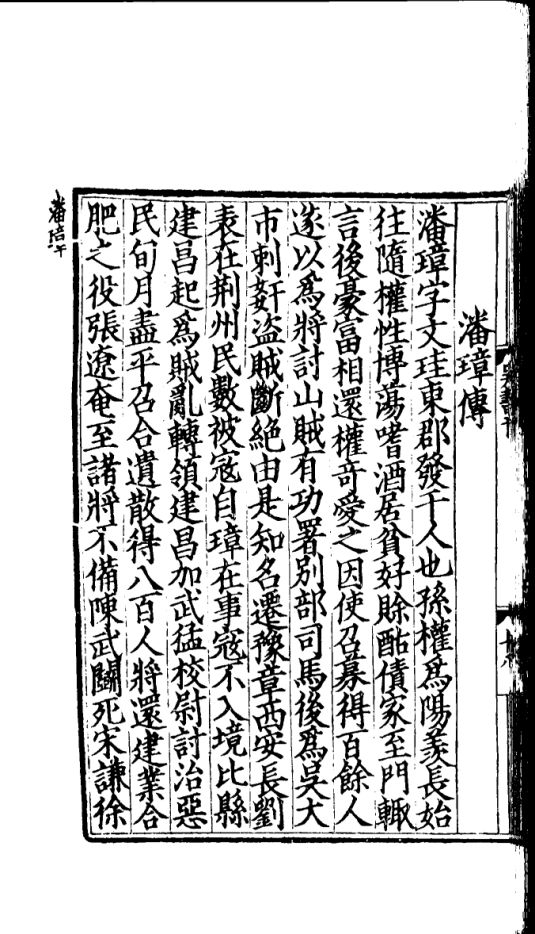 潘璋傳
潘璋字文珪東郡發干人也孫權爲陽羨長始
往隨權性博蕩嗜酒居貧好賒酤債家至門輙
言後豪富相還權奇愛之因使召募得百餘人
遂以爲將討山賊有功署別部司馬後爲吳大
市刺姦盜賊斷絕由是知名遷豫章西安長劉
表在荆州民數被寇自璋在事寇不入境比縣
建昌起爲賊亂轉領建昌加武猛校尉討治惡
民旬月盡平召合遺散得八百人將還建業合
肥之役張遼奄至諸將不備陳武鬭死宋謙徐